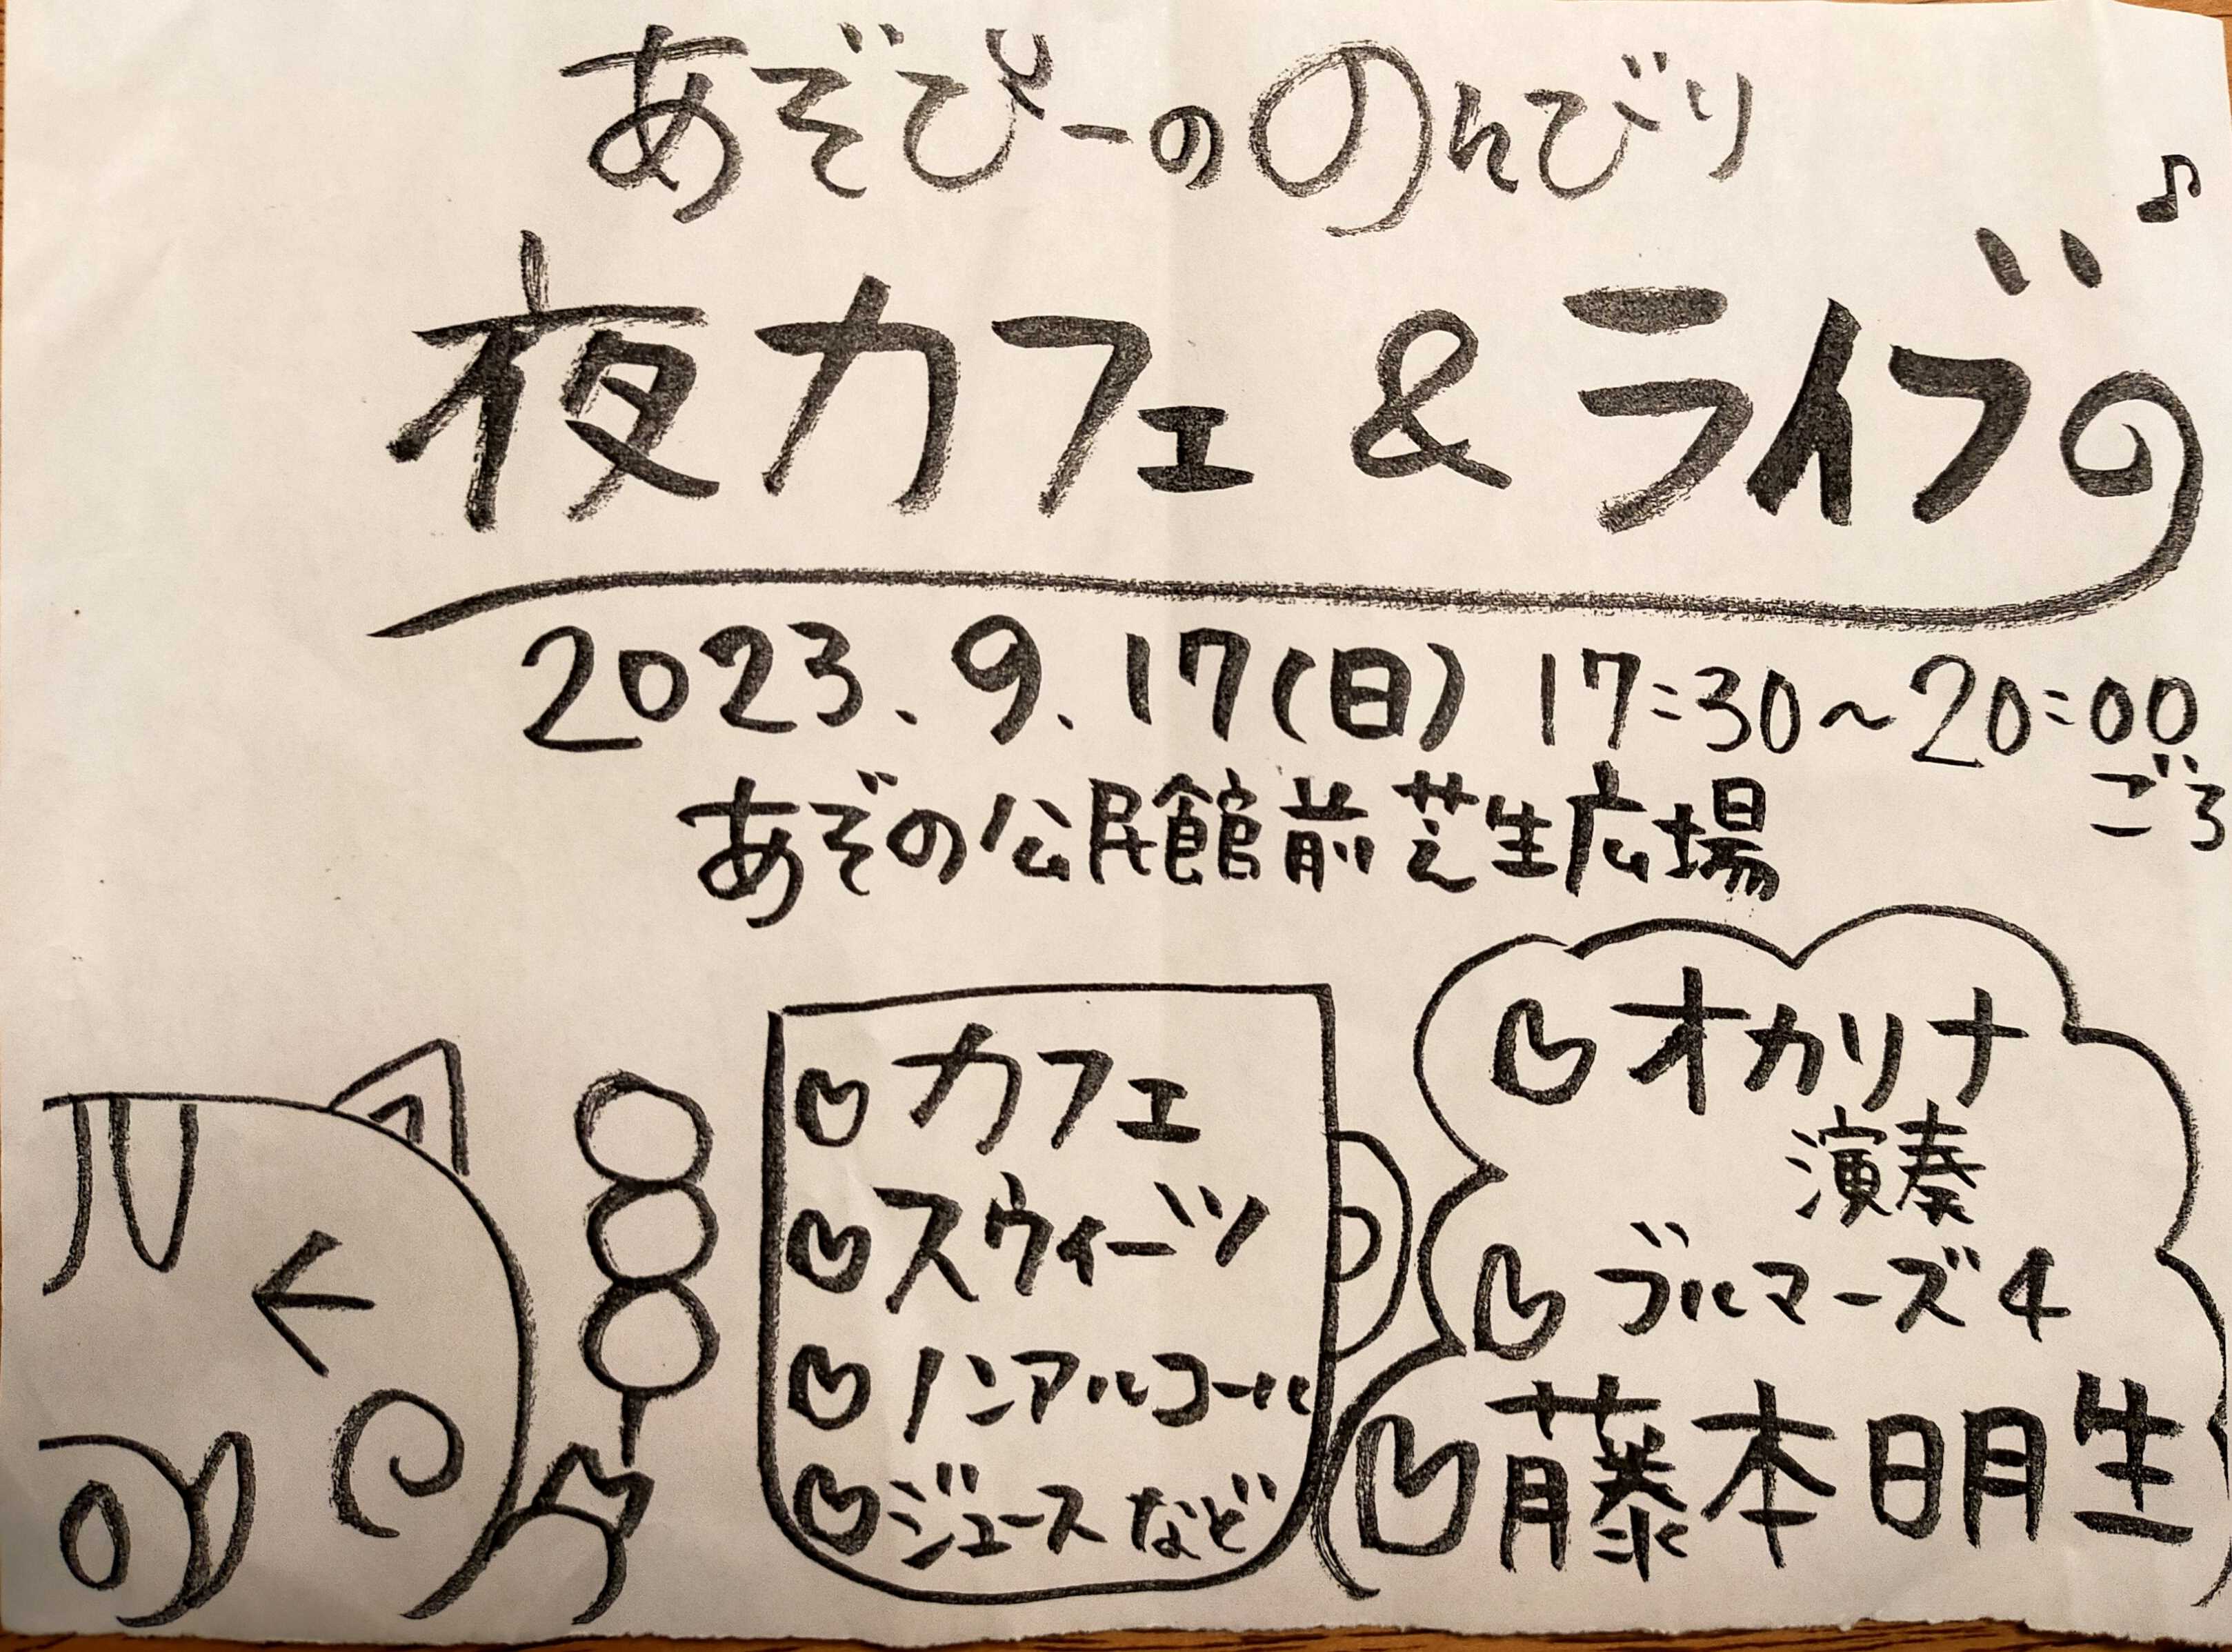 あぞぴーののんびり
夜カフェ & ライブ♪
2023.9.17(日) 17:30〜20:00
ごろ
あぞの公民館前芝生広場
カフェ
スウィーツ
ノンアルコール
ジュースなど
オカリナ
演奏
ブルマーズ4
藤本明生